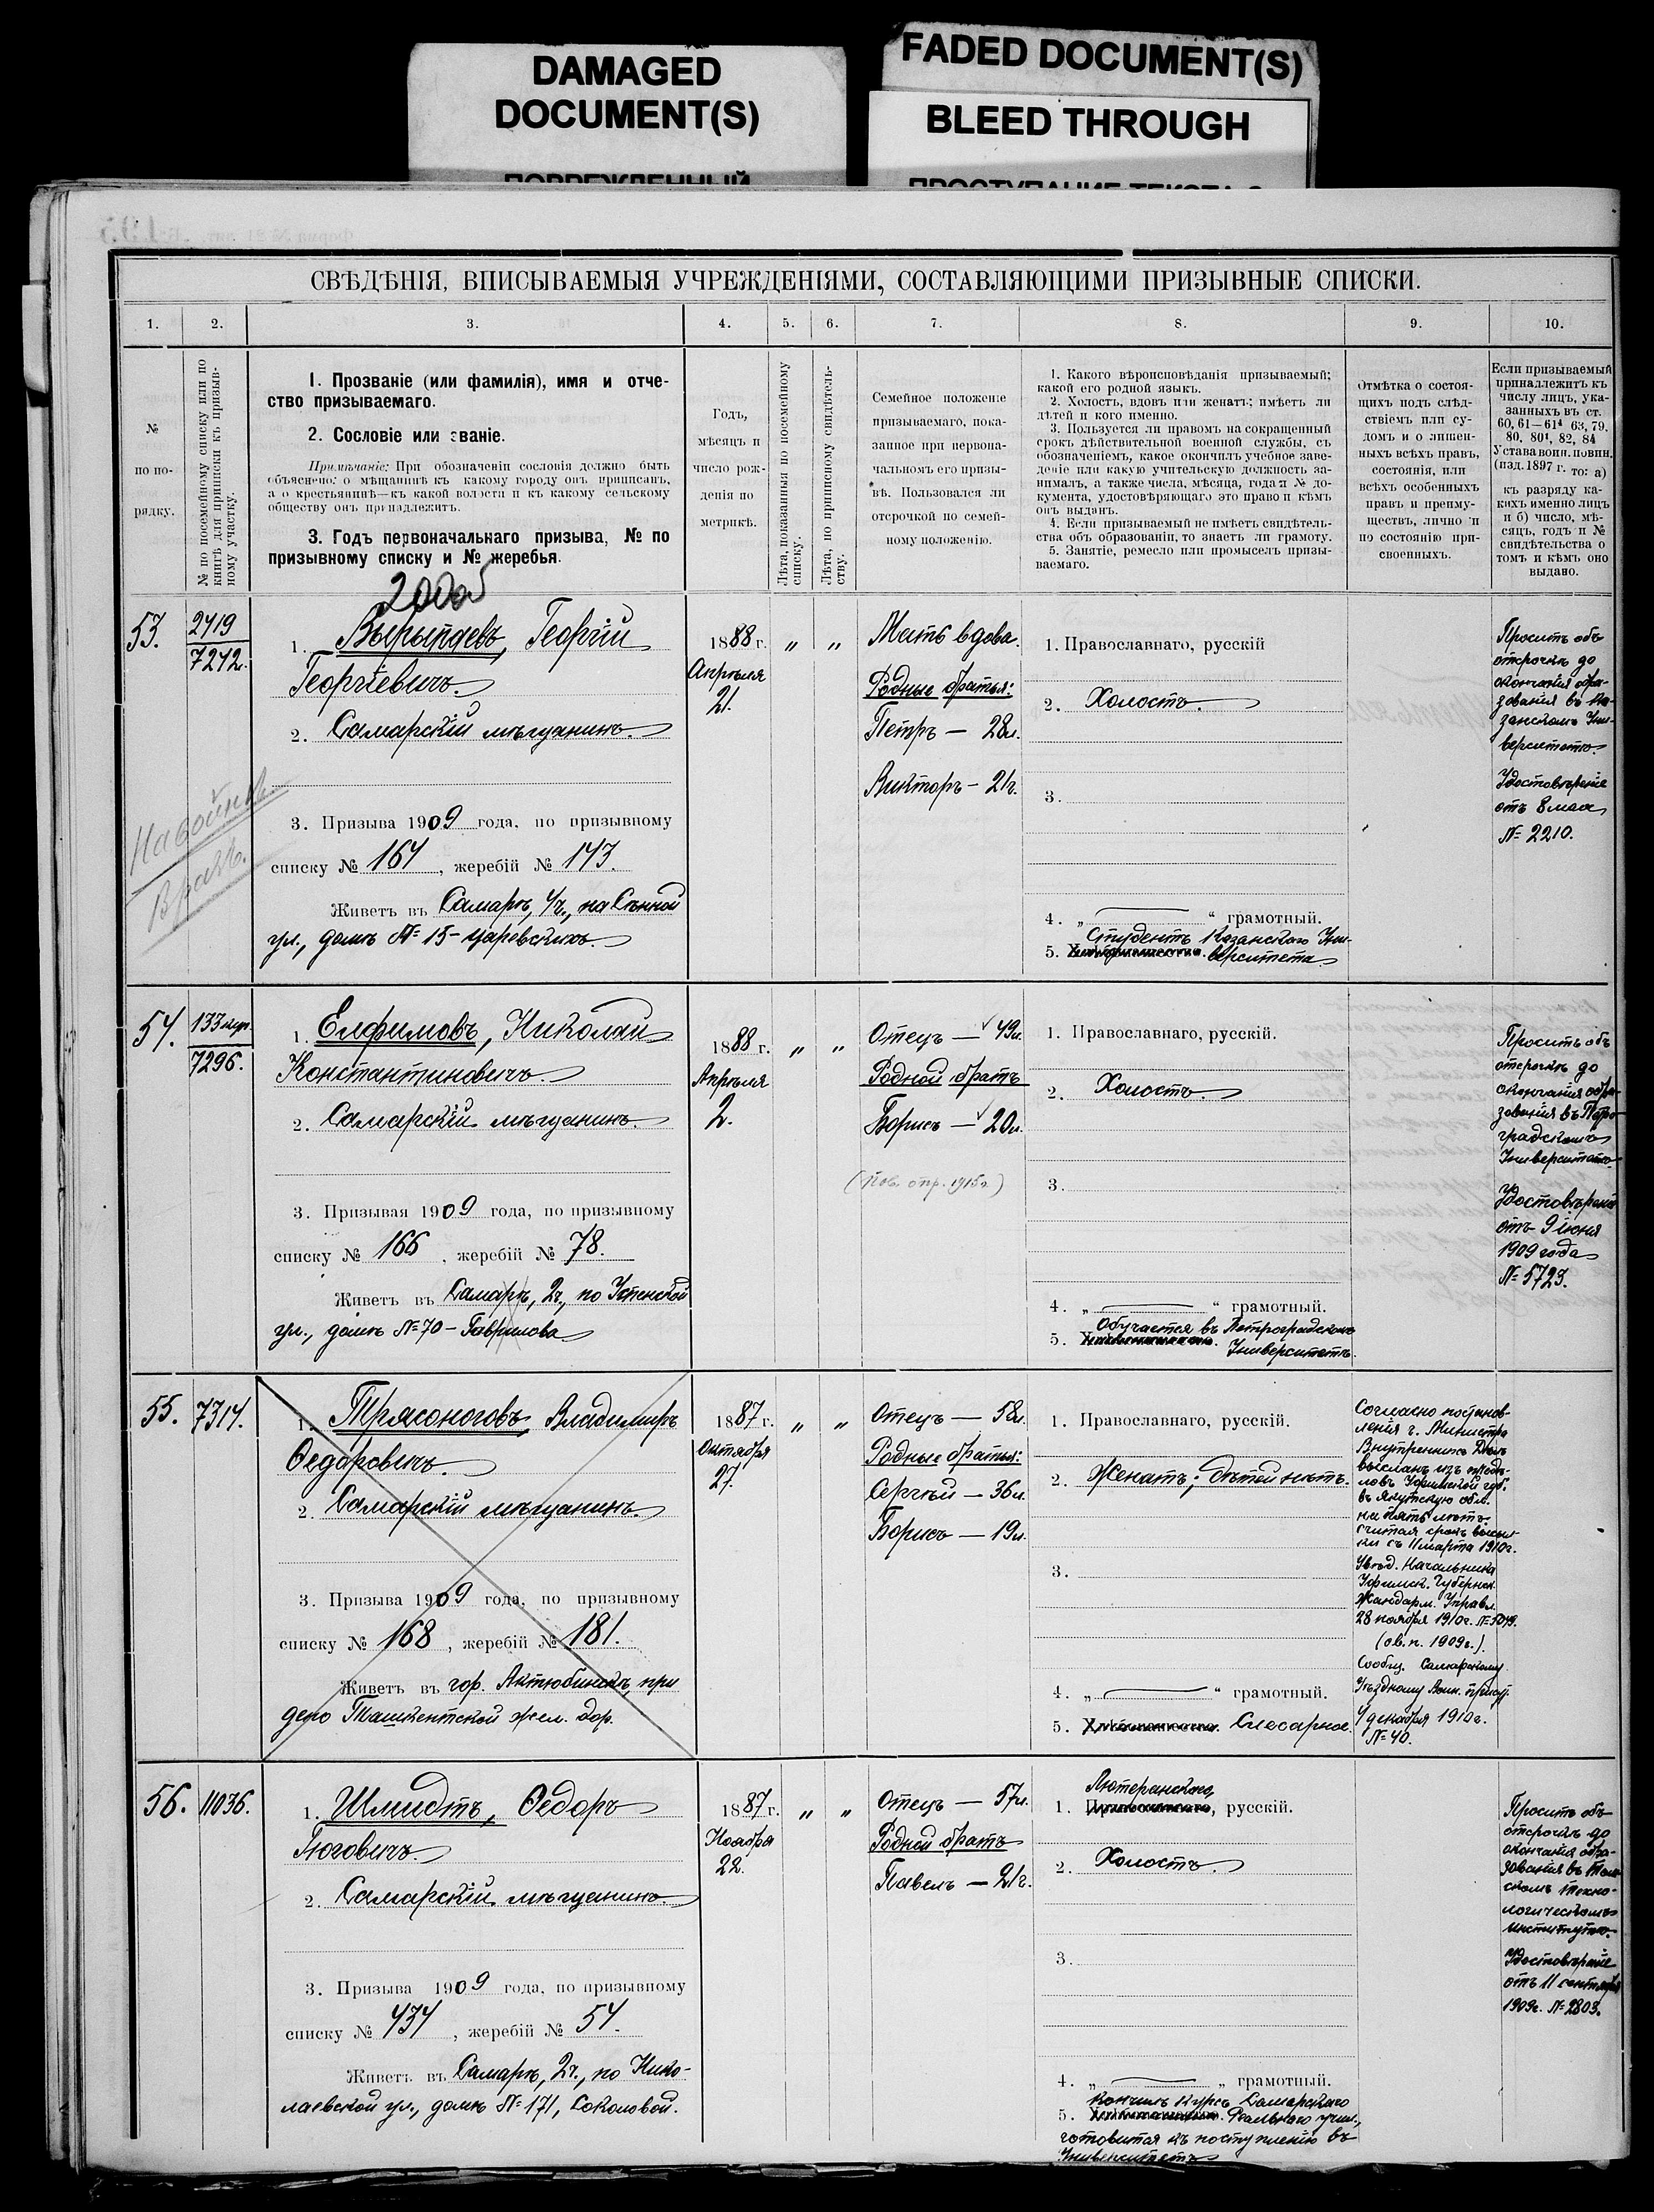 DAMAGED
DOCUMENT(S)
FADED DOCUMENT(S)
BLEED THROUGH
СВѢДѢНІЯ, ВПИСЫВАЕМЫЯ УЧРЕЖДЕНІЯМИ, СОСТАВЛЯЮЩИМИ ПРИЗЫВНЫЕ СПИСКИ.
1. 2. 3. 4. 5. 6. 7. 8. 9. 10.
№
по по-
рядку.
№ по посемейному списку или по
книгѣ для приписки къ призыв-
ному участку.
1. Прозваніе (или фамилія), имя и отче-
ство призываемаго.
2. Сословіе или званіе.
Примѣчаніе: При обозначеніи сословія должно быть
объяснено: о мѣщанинѣ къ какому городу онъ приписанъ,
а о крестьянинѣ—къ какой волости и къ какому сельскому
обществу онъ принадлежитъ.
3. Годъ первоначальнаго призыва, № по
призывному списку и № жеребья.
Годъ,
мѣсяцъ и
число рож-
денія по
метрикѣ.
Лѣта, показанныя по посемейному
списку.
Лѣта, по приписному свидѣтель-
ству.
Семейное положеніе
призываемаго, пока-
занное при первона-
чальномъ его призы-
вѣ. Пользовался ли
отсрочкой по семей-
ному положенію.
1. Какого вѣроисповѣданія призываемый;
какой его родной языкъ.
2. Холостъ, вдовъ или женатъ; имѣетъ ли
дѣтей и кого именно.
3. Пользуется ли правомъ на сокращенный
срокъ дѣйствительной военной службы, съ
обозначеніемъ, какое окончилъ учебное заве-
деніе или какую учительскую должность за-
нималъ, а также числа, мѣсяца, года и № до-
кумента, удостовѣряющаго это право и кѣмъ
онъ выданъ.
4. Если призываемый не имѣетъ свидѣтель-
ства объ образованіи, то знаетъ ли грамоту.
5. Занятіе, ремесло или промыселъ призы-
ваемаго.
Отмѣтка о состоя-
щихъ подъ слѣд-
ствіемъ или су-
домъ и о лишен-
ныхъ всѣхъ правъ,
состоянія, или
всѣхъ особенныхъ
правъ и преиму-
ществъ, лично и
по состоянію при-
своенныхъ.
Если призываемый
принадлежитъ къ
числу лицъ, ука-
занныхъ въ ст.
60, 61—61⁴ 63, 79.
80, 80¹, 82, 84
Устава воин. повин.
(изд. 1897 г. то: а)
къ разряду ка-
кихъ именно лицъ
и б) число, мѣ-
сяцъ, годъ и №
свидѣтельства о
томъ и кѣмъ оно
выдано.
53.
2419
7242.
1. Вырыпаевъ, Георгій
Георгіевичъ.
2. Самарскій мѣщанинъ.
3. Призыва 1909 года, по призывному
списку № 164, жеребій № 143.
Живетъ въ Самарѣ, 4ч., на Сѣнной
ул., домъ № 15 - Царевскихъ.
1888 г.
Апрѣля
21.
„ „
Мать вдова.
Родные братья:
Петръ — 28л.
Викторъ — 21г.
1. Православнаго, русскій
2. Холостъ.
3.
4. „ “ грамотный.
Студентъ Казанскаго Уни-
5. верситета.
Проситъ объ
отсрочкѣ до
окончанія обра-
зованія въ Ка-
занскомъ Уни-
верситетѣ.
Удостовѣреніе
отъ 8 мая
№ 2210.
54.
7296.
1. Елфимовъ, Николай
Константиновичъ.
2. Самарскій мѣщанинъ.
3. Призывая 1909 года, по призывному
списку № 166, жеребій № 78.
Живетъ въ Самарѣ, 2ч., по Успенской
ул., домъ № 70 - Гаврилова
1888 г.
Апрѣля
2.
„ „
Отецъ — 49л.
Родной братъ
Борисъ — 20л.
1. Православнаго, русскій.
2. Холостъ.
3.
4. „ “ грамотный.
Обучается въ Петроградскомъ
5. Университетѣ.
Проситъ объ
отсрочкѣ до
окончанія обра-
зованія въ Петро-
градскомъ
Университетѣ.
Удостовѣреніе
отъ 9 іюня
1909 года
№ 5723.
55.
7314.
1. Трясоноговъ Владимиръ
Ѳедоровичъ.
2. Самарскій мѣщанинъ.
3. Призыва 1909 года, по призывному
списку № 168, жеребій № 181.
Живетъ въ гор. Актюбинскѣ, при
депо Ташкентской жел. дор.
1887 г.
Октября
27.
„ „
Отецъ — 58л.
Родные братья:
Сергѣй — 36л.
Борисъ — 19л.
1. Православнаго, русскій.
2. Женатъ; дѣтей нѣтъ.
3.
4. „ “ грамотный.
5. Слесарное.
Согласно постанов-
ленія г. Министра
Внутреннихъ Дѣлъ
высланъ изъ предѣ-
ловъ Уфимской губ.
въ Якутскую обл.
на пять лѣтъ,
считая срокъ высыл-
ки съ 11 марта 1910г.
Увѣд. Начальника
Уфимск. Губернск.
Жандарм. Управл.
28 ноября 1910г.
(ов. п. 1909г.).
Сообщ. Самарскому
Уѣздному Воин. присут.
4 декабря 1910г.
№ 40.
56.
11036.
1. Шмидтъ, Ѳедоръ
Гюговичъ.
2. Самарскій мѣщанинъ.
3. Призыва 1909 года, по призывному
списку № 434, жеребій № 54.
Живетъ въ Самарѣ, 2ч., по Нико-
лаевской ул., домъ № 171, Соколовой.
1887 г.
Ноября
22.
„ „
Отецъ — 57л.
Родной братъ
Павелъ — 21г.
Лютеранскаго
1. Православнаго, русскій.
2. Холостъ.
3.
4. „ „ грамотный.
Кончилъ курсъ Самарскаго
5. Реальнаго учил.,
готовится къ поступленію въ
Университетъ
Проситъ объ
отсрочкѣ до
окончанія обра-
зованія въ Том-
скомъ Техно-
логическомъ
Институтѣ.
Удостовѣреніе
отъ 11 сентября
1909г. № 2803.